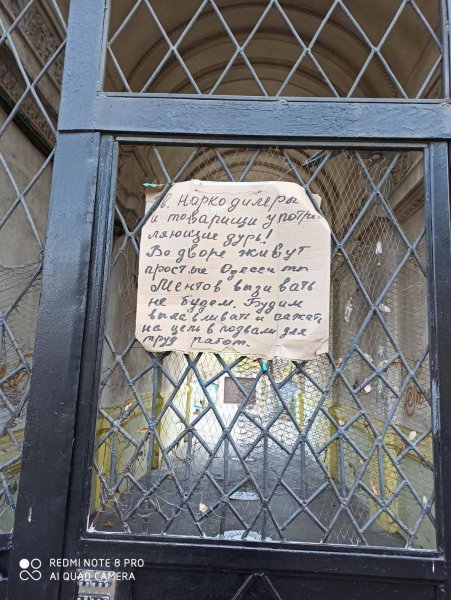 ув. Наркодилеры
и товарищи употре-
ляющие дурь!
Во дворе живут
простые Одесситы
Ментов вызивать
не будем. Будим
вылавливать и сажать
на цепь в подвали для
труд работ.
REDMI NOTE 8 PRO
AI QUAD CAMERA